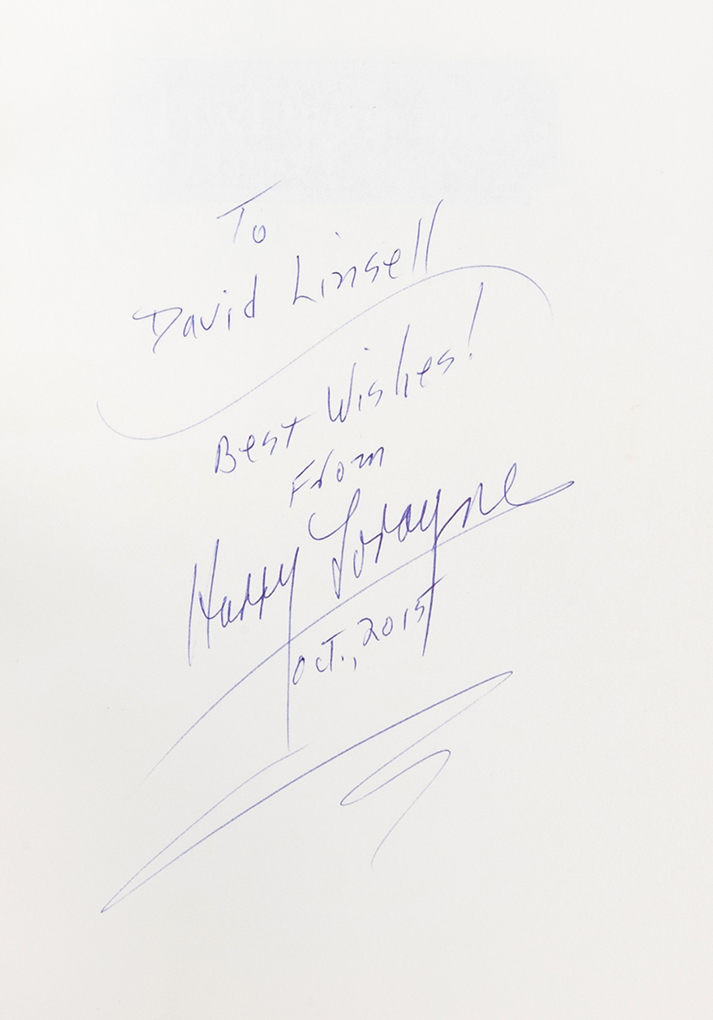 To
David Linsell
Best Wishes!
From
Harry Lorayne
Oct., 2015